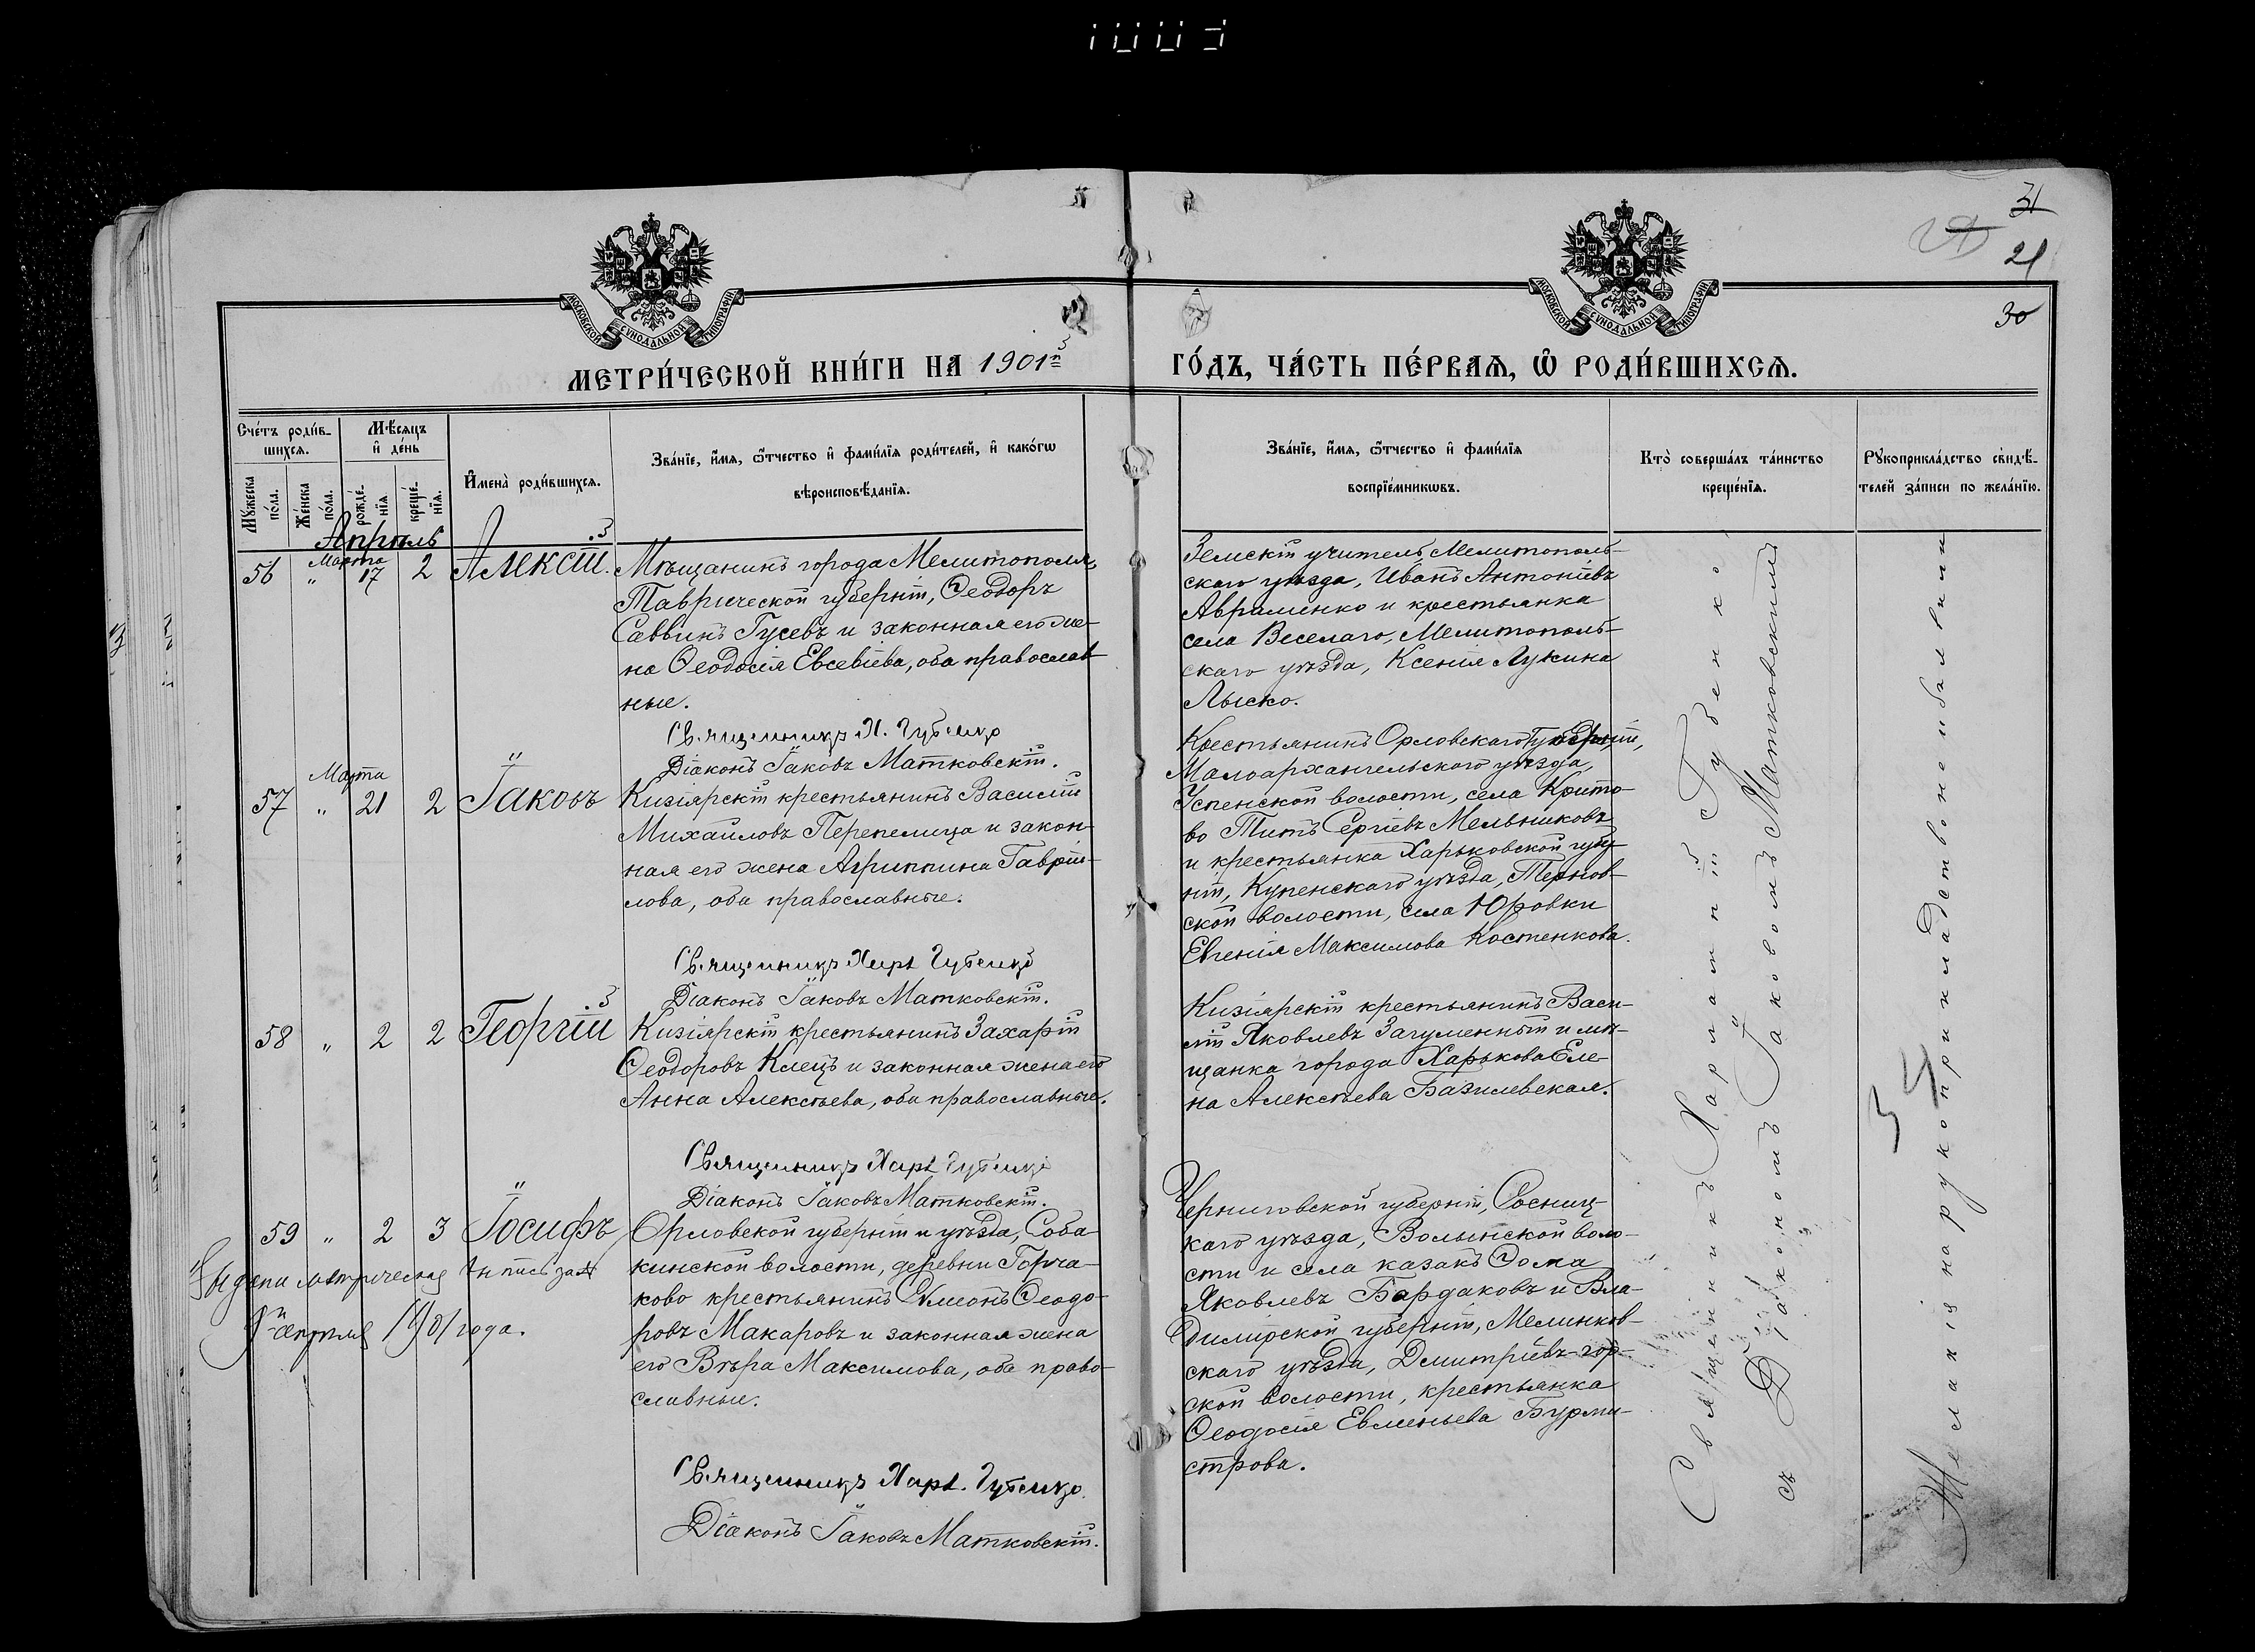 31
21
30
МОСКОВСКОЙ СѴНОДАЛЬНОЙ ТИПОГРАФІИ
МОСКОВСКОЙ СѴНОДАЛЬНОЙ ТИПОГРАФІИ
МЕТРИ́ЧЕСКОЙ КНИ́ГИ НА 1901й
ГО́ДЪ, ЧА́СТЬ ПЕ́РВАѦ, Ѽ РОДИ́ВШИХСѦ.
Сче́тъ роди́в-
шихсѧ.
Мꙋ́жеска по́ла.
Же́нска по́ла.
Мѣ́сѧцъ
и҆ де́нь
рожде́-
нїѧ
креще́-
нїѧ.
И҆мена̀ роди́вшихсѧ.
Зва́нїе, и҆́мѧ, ѻ҆́тчество и҆ фами́лїѧ роди́телей, и҆ како́гѡ
вѣроисповѣ́данїѧ.
Зва́нїе, и҆́мѧ, ѻ҆́тчество и҆ фами́лїѧ
воспрїе́мникѡвъ.
Кто̀ соверша́лъ та́инство
креще́нїѧ.
Рꙋкоприкла́дство свидѣ́-
телей за́писи по жела́нїю.
Апрѣль
56 " Марта 17 2 Алексій.
Мѣщанинъ города Мелитополя,
Таврической губерніи, Ѳеодоръ
Саввинъ Гусевъ и законная его же-
на Ѳеодосія Евсевіева, оба православ-
ные.
Священникъ Х. Губенко
Діаконъ Іаковъ Матковскій.
Земскій учитель, Мелитополь-
скаго уѣзда, Иванъ Антоніевъ
Авраменко и крестьянка
села Веселаго, Мелитополь-
скаго уѣзда, Ксенія Лукина
Лыско.
57 " Марта 21 2 Іаковъ
Кизіярскій крестьянинъ Василій
Михаиловъ Перепелица и закон-
ная его жена Агриппина Гаврій-
лова, оба православные.
Священникъ Харл Губенко
Діаконъ Іаковъ Матковскій.
Крестьянинъ Орловскаго Губерніи,
Малоархангельского уѣзда,
Успенской волости, села Крито-
во Титъ Сергіевъ Мельниковъ
и крестьянка Харьковской губер-
ніи, Купенскаго уѣзда, Тернов-
ской волости, села Юровки
Евгенія Максимова Костенкова.
58 " 2 2 Георгій
Кизіярскій крестьянинъ Захарій
Ѳеодоровъ Клецъ и законная жена его
Анна Алексѣева, оба православные.
Священникъ Харл Губенко
Діаконъ Іаковъ Матковскій.
Кизіярскій крестьянинъ Васи-
лій Яковлевъ Загуменный и мѣ-
щанка города Харькова Еле-
на Алексѣева Базилевская.
59 " 2 3 Іосифъ
Выдена метрическая выпись за №
9й апрѣля 1901 года.
Орловской губерніи и уѣзда, Соба-
кинской волости, деревни Горча-
ково крестьянинъ Сѵмеонъ Ѳеодо-
ровъ Макаровъ и законная жена
его Вѣра Максимова, оба право-
славные.
Священникъ Харл. Губенко.
Діаконъ Іаковъ Матковскій.
Черниговской губерніи, Сосниц-
каго уѣзда, Волынской воло-
сти и села казакъ Ѳома
Яковлевъ Бардаковъ и Вла-
димірской губерніи, Меленков-
скаго уѣзда, Димитріевъ-гор-
ской волости, крестьянка
Ѳеодосія Евменьева Бурми-
строва.
Священникъ Харлампій Губенко
съ Діакономъ Іаковомъ Матковскимъ
Желанія на рукоприкладство не объявили
34